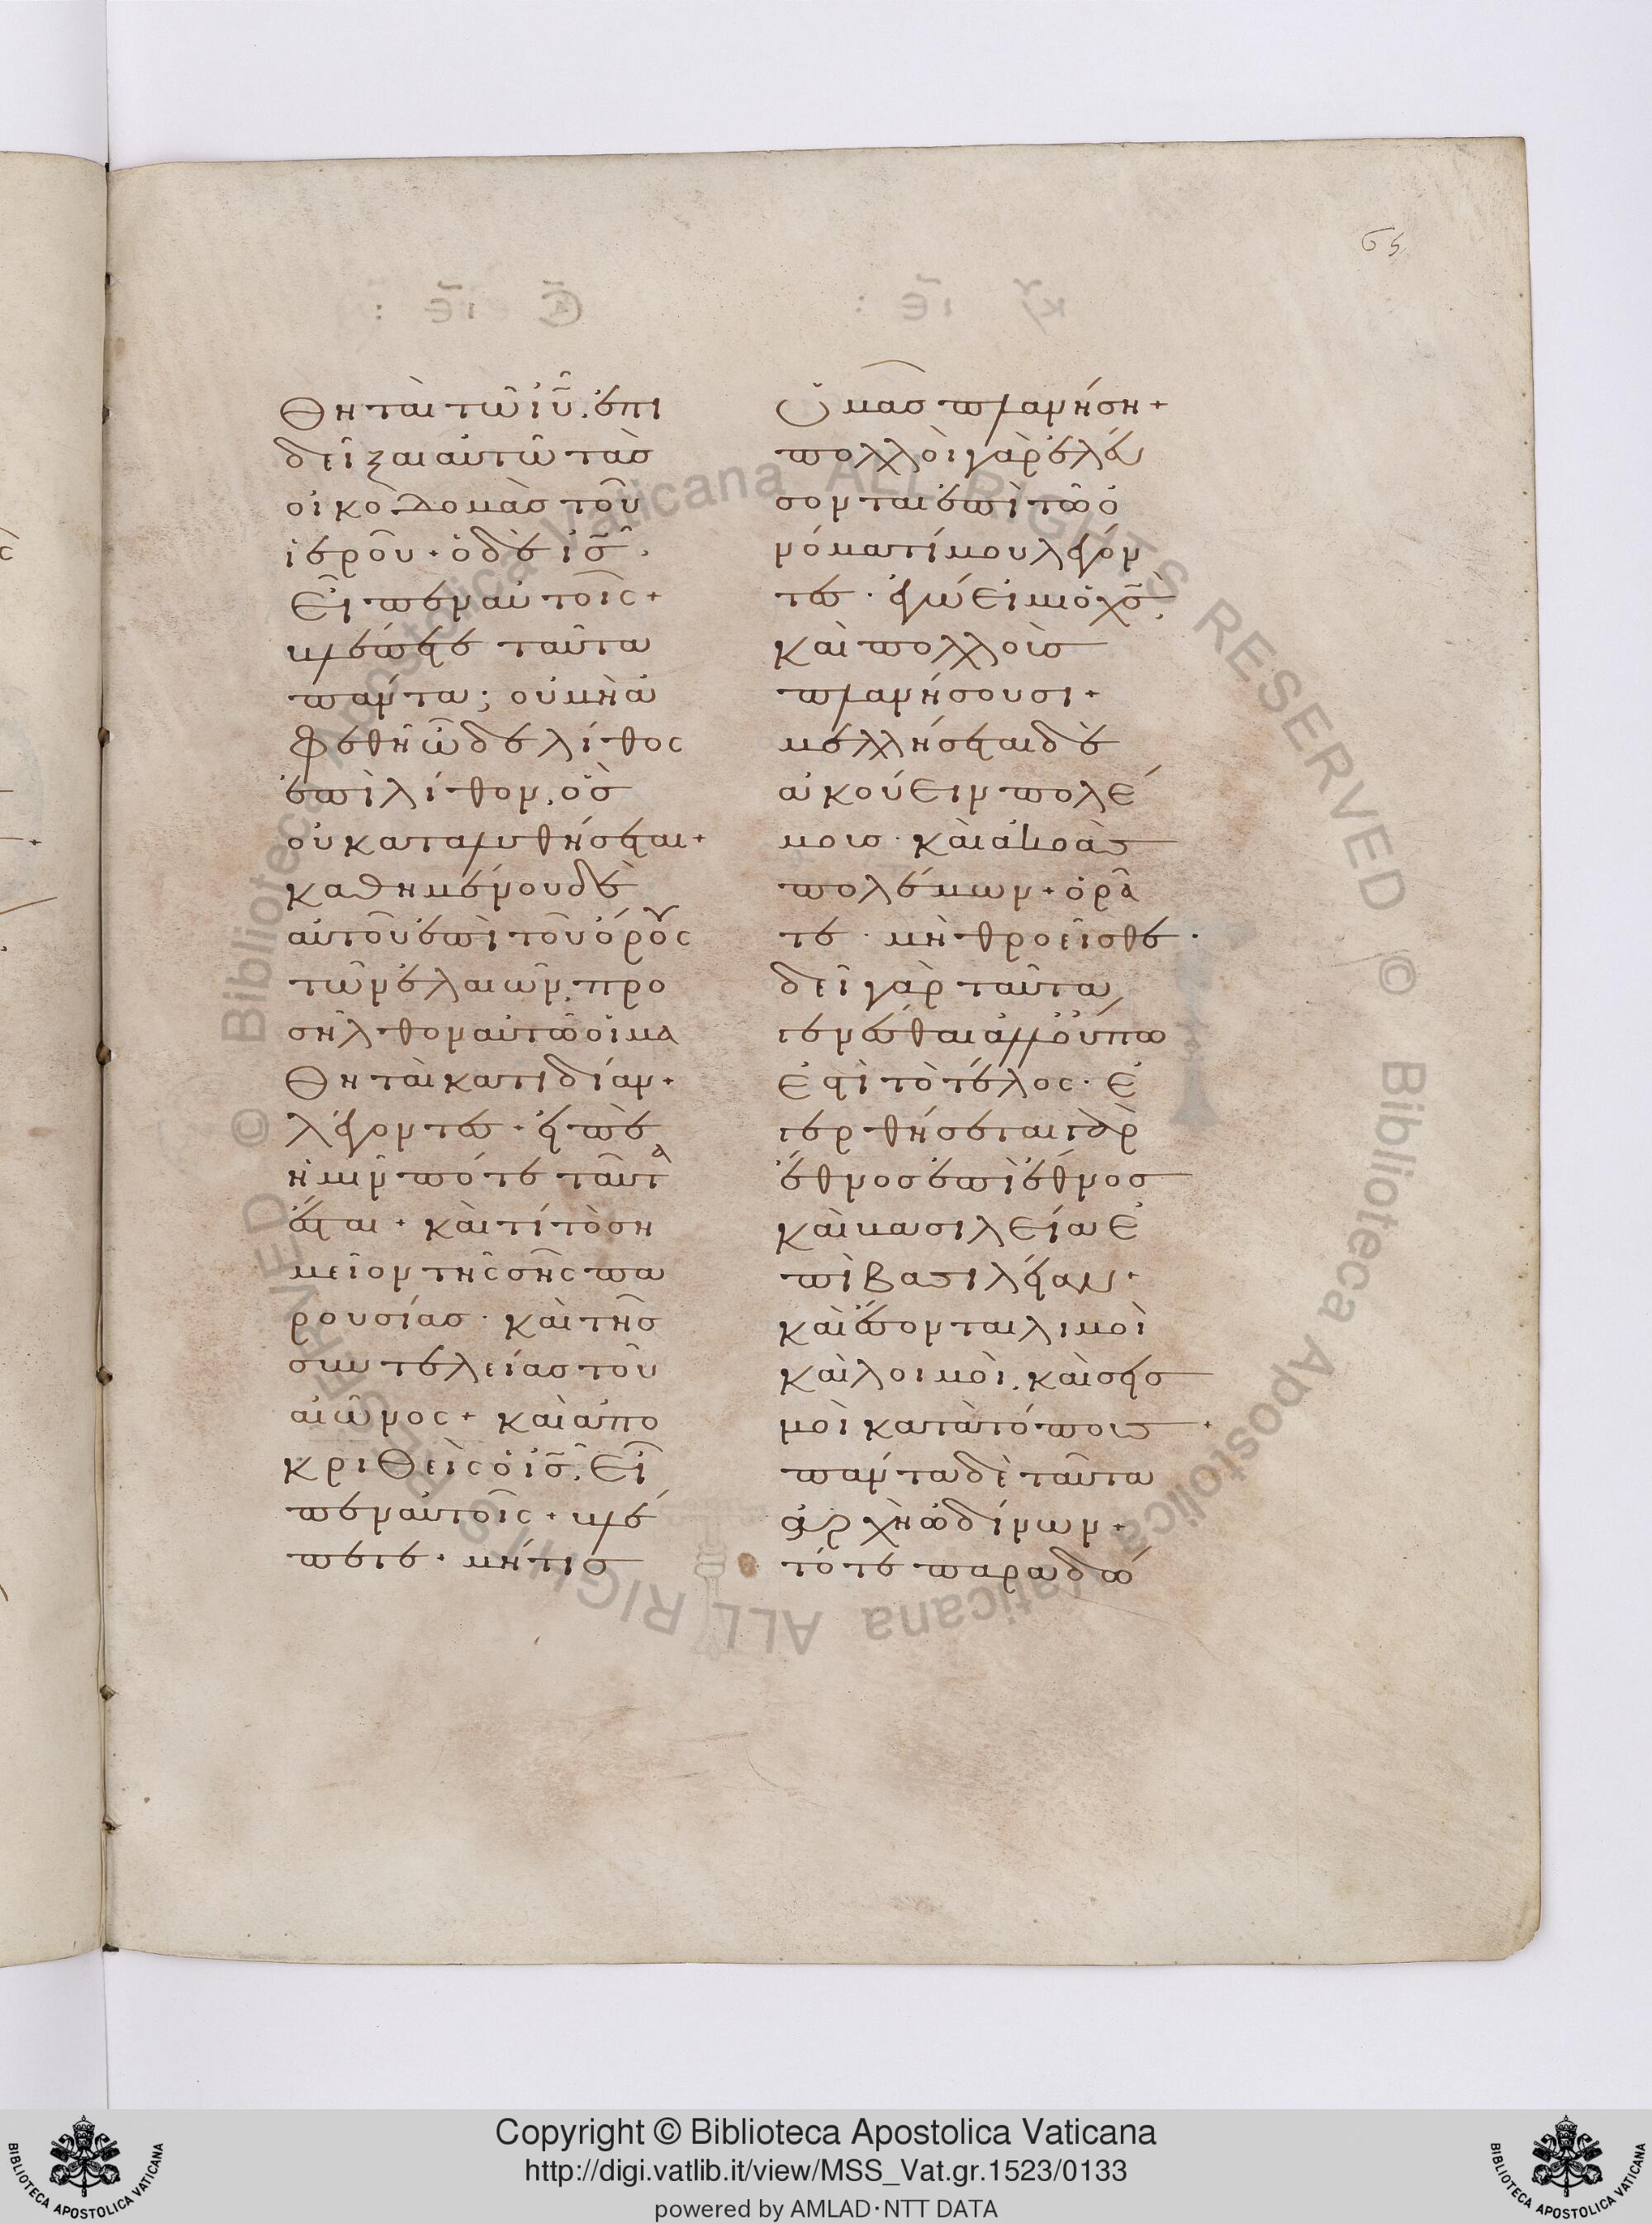 65
θηται τῶ ιυ̅. ἐπι
δεῖξαι αὐτῶ τὰσ
οἰκοδομὰσ τοῦ
ἱεροῦ + ὁ δὲ ισ̅.
Εἶπεν αὐτοῖς +
βλέπετε ταῦτα
πάντα; οὐ μὴ ἀ
φεθῆ ὧδε λίθος
ἐπὶ λίθον. ὃσ
οὐ καταλυθήσεται +
καθημένου δὲ
αὐτοῦ ἐπὶ τοῦ ὄρους
τῶν ἐλαιῶν. προ
σῆλθον αὐτῶ οἱ μα
θηταὶ κατιδίαν +
λέγοντες · εἰπὲ
ἡμῖν πότε ταῦτα
ἔσται + καὶ τί τὸ ση
μεῖον τῆς σῆς πα
ρουσίας · καὶ τῆσ
συντελείας τοῦ
αἰῶνος + καὶ ἀπο
κριθεὶς ὁ ισ̅. Εἶ
πεν αὐτοῖς + βλέ
πετε · μή τισ
ὑμᾶσ πλανήση +
πολλοὶ γὰρ ἐλεύ
σονται ἐπὶ τῶ ὀ
νόματί μου λέγον
τες · ἐγώ εἰμι ὁ χσ̅.
καὶ πολλοὺσ
πλανήσουσι +
μελλήσεται δὲ
ἀκούειν πολέ
μουσ · καὶ ἀκοὰσ
πολέμων + ὁρᾶ
τε · μὴ θροεῖσθε ·
δεῖ γὰρ ταῦτα γε
νέσθαι ἀλλ' οὔπω
ἐστὶ τὸ τέλος · Ἐ
γερθήσεται γὰρ
ἔθνοσ ἐπὶ ἔθνοσ
καὶ βασιλεία ἐ
πὶ βασιλείαν ·
καὶ ἔσονται λιμοὶ
καὶ λοιμοὶ. καὶ σεισ
μοὶ κατὰ τόπουσ +
πάντα δὲ ταῦτα
ἀρχὴ ὠδίνων +
τότε παραδώ
Copyright © Biblioteca Apostolica Vaticana
http://digi.vatlib.it/view/MSS_Vat.gr.1523/0133
powered by AMLAD·NTT DATA